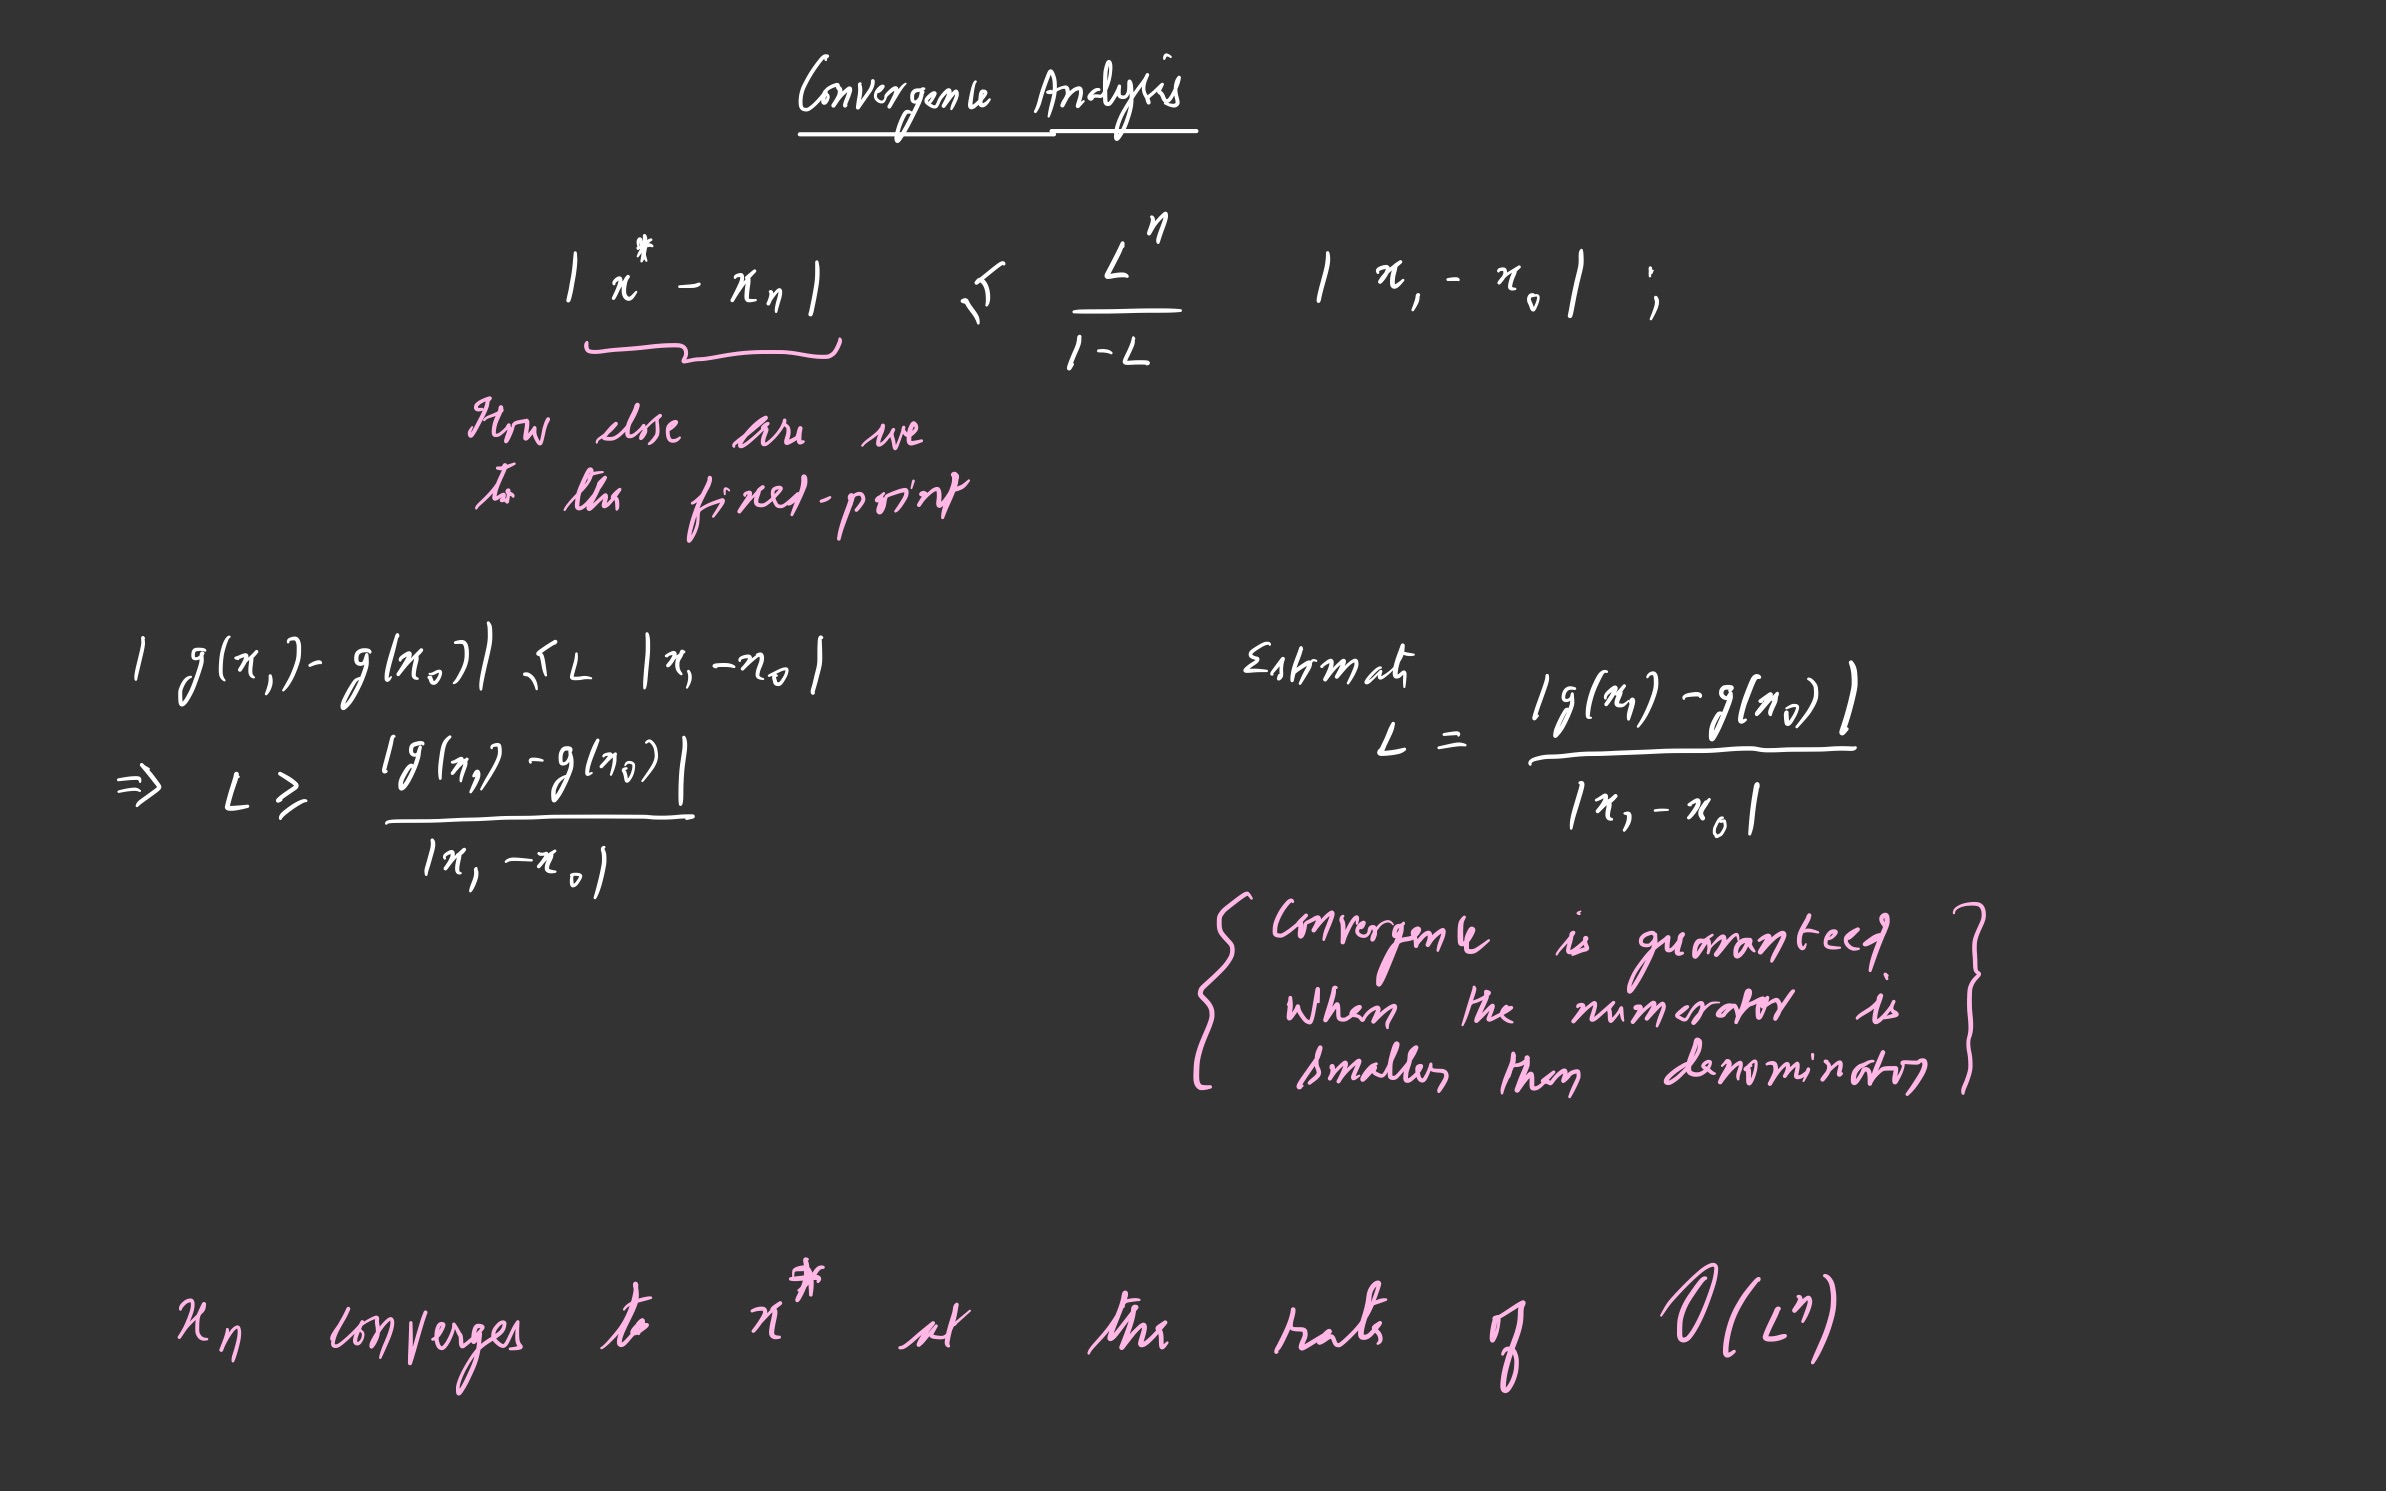 Convergence Analysis
| x* - xₙ | ≤ Lⁿ / (1 - L) | x₁ - x₀ | ;
How close are we
to the fixed-point
| g(x₁) - g(x₀) | ≤ L | x₁ - x₀ |
⇒ L ≥ | g(x₁) - g(x₀) | / | x₁ - x₀ |
Estimate
L = | g(x₁) - g(x₀) | / | x₁ - x₀ |
{ Convergence is guaranteed
when the numerator is
smaller than denominator }
xₙ converges to x* at the rate of O(Lⁿ)